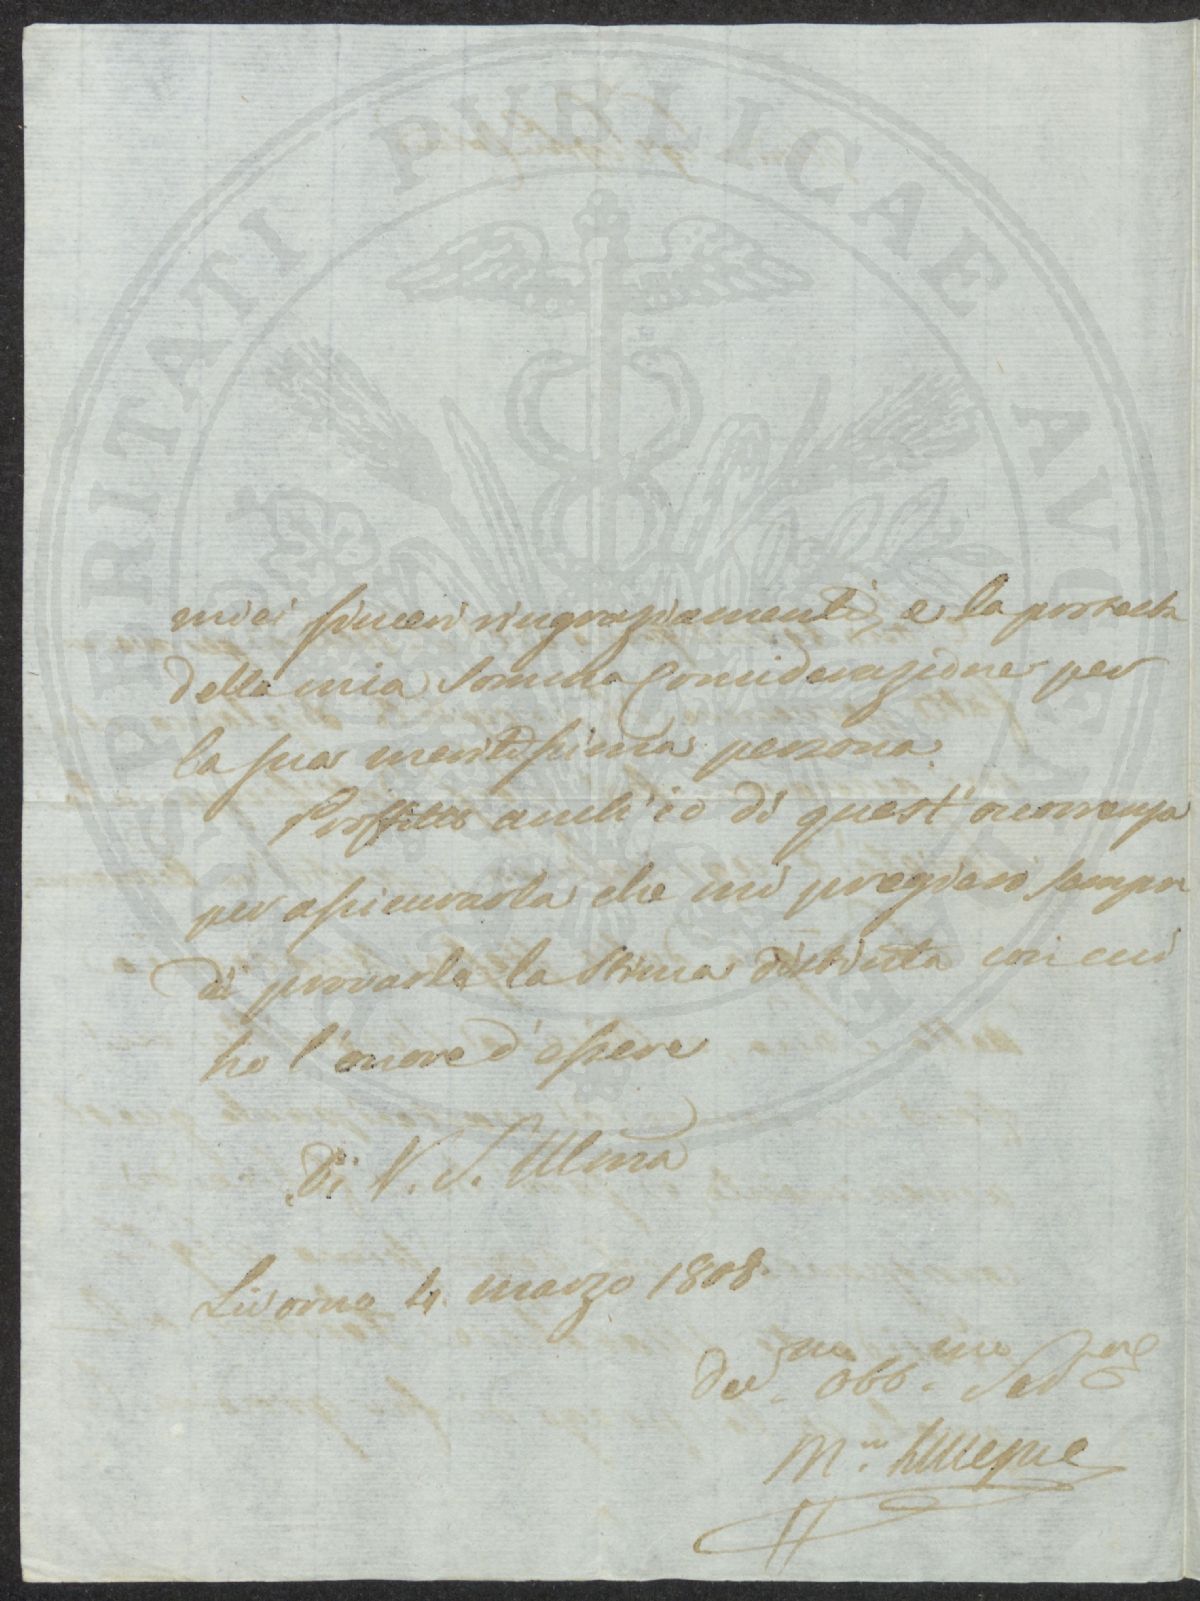 PROSPERITATI PUBLICAE AUGENDAE
miei sinceri ringraziamenti, e la protesta
della mia somma Considerazione per
la sua meritissima persona
Profitto anch'io di quest'occorrenza
per assicurarla che mi pregierò sempre
di provarle la stima distinta con cui
ho l'onore d'essere
Di V. S. Ill.ma
Livorno 4. marzo 1808.
Dev.mo Obb.mo Ser.e
M.